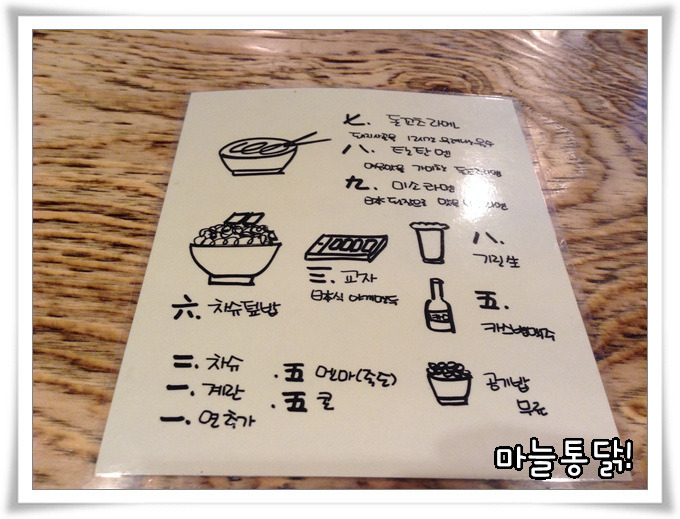 七. 돈코츠라멘
돼지사골을 12시간 우려낸 육수
八. 탄탄멘
매운맛을 가미한 돈코츠라멘
九. 미소라멘
日本 된장으로 맛을 라멘
三. 교자
日本식 야끼만두
八.
기린生
六. 차슈덮밥
五.
카스병맥주
二. 차슈
一. 계란
一. 면추가
. 五 멘마(죽순)
. 五 콜
공기밥
무료
마늘통닭!